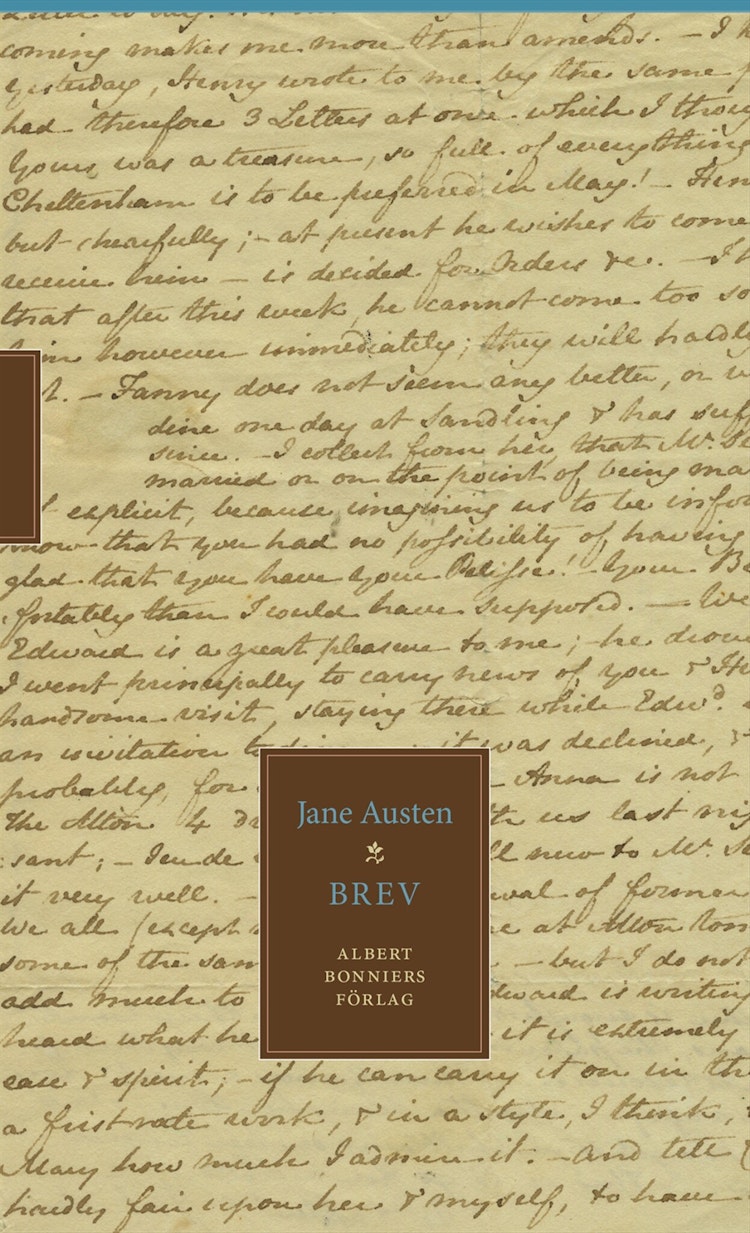 coming makes me more than amends. — I h
yesterday, Henry wrote to me by the same p
had therefore 3 Letters at once which I thoug
Yours was a treasure, so full of everything
Cheltenham is to be preferred in May! — Hen
but chearfully; — at present he wishes to come
receive him — is decided for Orders &c. — I t
that after this week he cannot come too so
him however immediately; they will hardly
t. — Fanny does not seem any better, or v
dine one day at Sandling & has suff
since. — I collect from her, that Mr. Se
married or on the point of being ma
explicit, because imagining us to be infor
know that you had no possibility of having
glad that you have your Pelisse! — Your Be
fortably than I could have supposed. — We
Edward is a great pleasure to me; — he drove
I went principally to carry news of you & He
handsome visit, staying there while Edwd.
an invitation to it was declined, &
probably, for — Anna is not
the Alton 4 us last nig
sant; — new to Mr. Se
it very well. — of former
We all (except at Alton tom
some of the sam — but I do not
add much to Edward is writing
heard what he it is extremely
ease & spirit; — if he can carry it on in the
a first rate work, & in a style, I think,
Mary how much I admire it. — And tell
hardly fair upon her & myself, to have
Jane Austen
BREV
ALBERT
BONNIERS
FÖRLAG